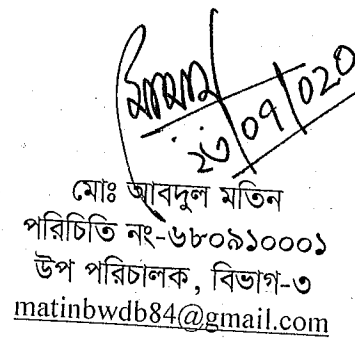 ২৩/০৭/০২০
মোঃ আবদুল মতিন
পরিচিতি নং-৬৮০৯১০০০১
উপ পরিচালক, বিভাগ-৩
matinbwdb84@gmail.com